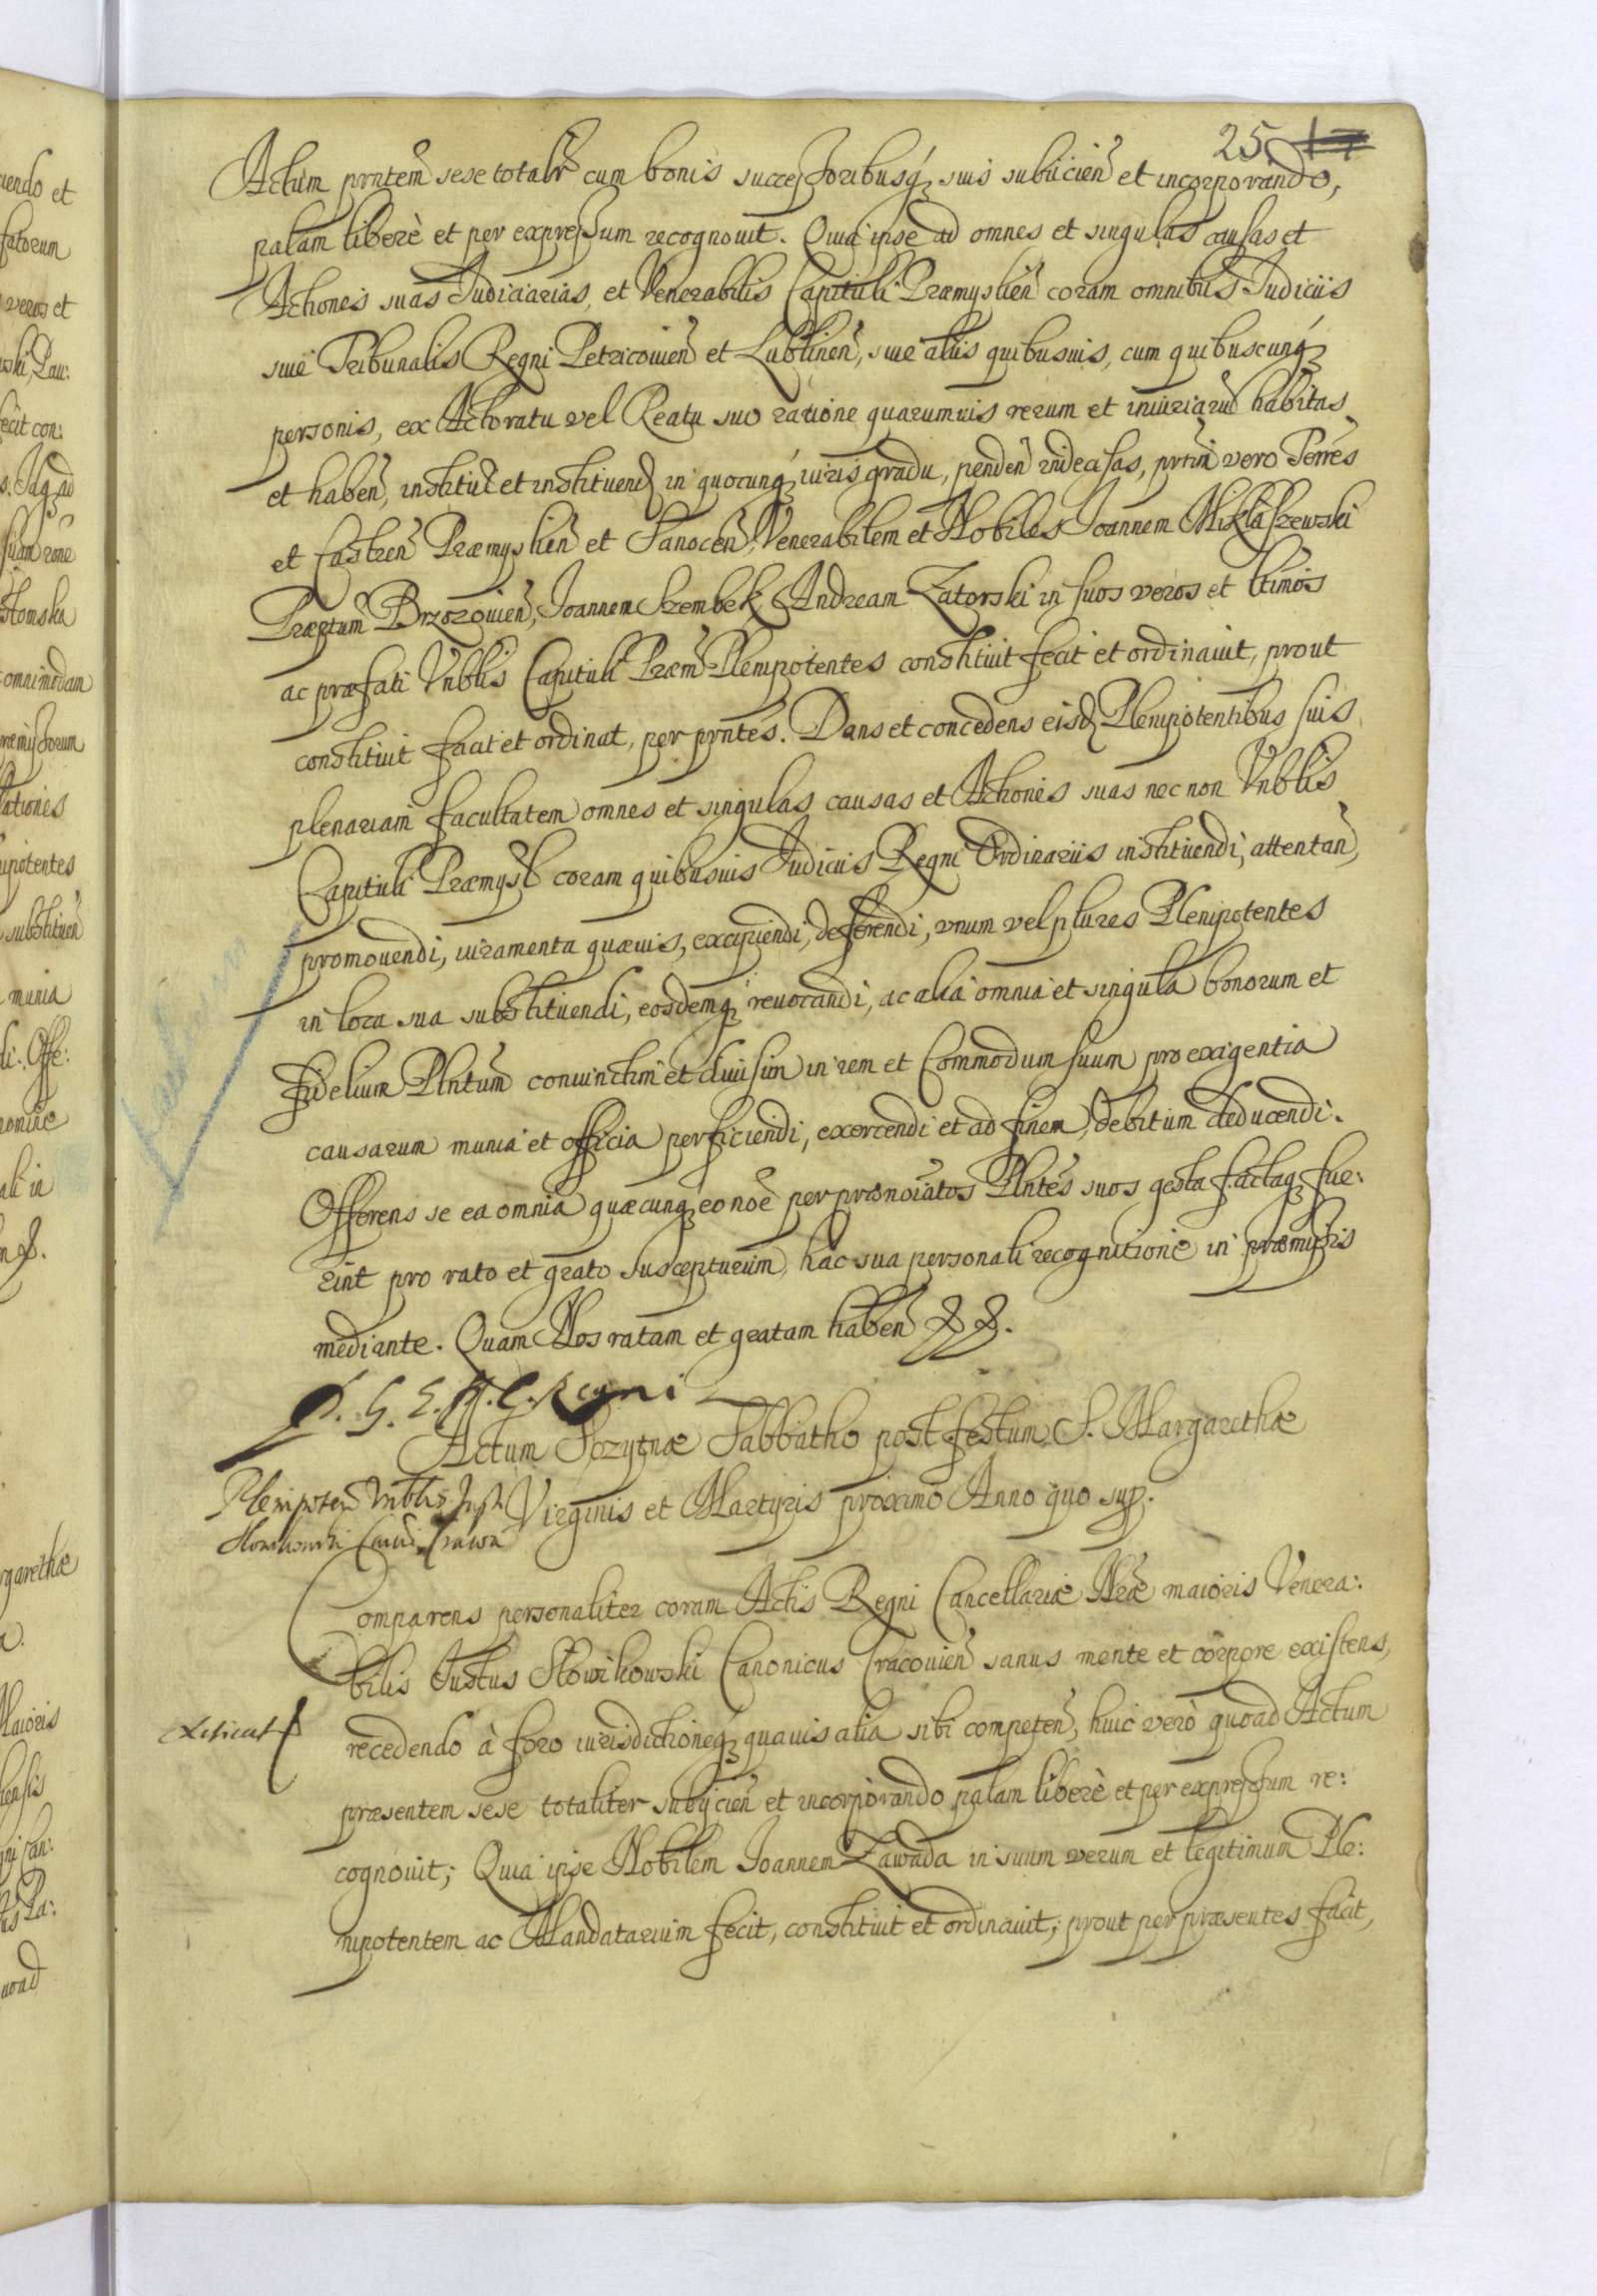 25
Actum prntem sese totalr cum bonis successoribusq suis subiicien et incorporando,
palam liberè et per expressum recognouit. Quia ipse ad omnes et singulas causas et
Actiones suas Judiciarias, et Venerabilis Capituli Præmyslien coram omnibus Judiciis
siue Tribunalis Regni Petricouien et Lublinen, siue aliis quibusuis, cum quibuscunq
personis, ex Actoratu vel Reatu suo ratione quarumuis rerum et iniuriaru habitas
et haben, institut et instituend in quocunq iuris gradu, penden indecisas, prtim vero Terres
et Castren Præmyslien et Sanocen, Venerabilem et Nobiles Joannem Miklaszewski
Præptum Brzozouien, Joannem Szembek, Andream Zatorski in suos veros et ltimos
ac præfati Vnblis Capituli Præm Plenipotentes constituit fecit et ordinauit, prout
constituit facit et ordinat, per prntes. Dans et concedens eisd Plenipotentibus suis
plenariam facultatem omnes et singulas causas et Actiones suas nec non Vnblis
Capituli Præmysl coram quibusuis Judiciis Regni Ordinariis instituendi, attentan,
promouendi, iuramenta quæuis, excipiendi, deferendi, vnum vel plures Plenipotentes
in loca sua substituendi, eosdemq reuocandi, ac alia omnia et singula bonorum et
fidelium Plntum coniunctim et diuisim in rem et Commodum suum pro exigentia
causarum munia et officia perficiendi, exercendi et ad finem debitum deducendi.
Offerens se ea omnia quæcunq eo noe per prænoiatos Plntes suos gesta factaq fue:
rint pro rato et grato suscepturum, hac sua personali recognitione in præmissis
mediante. Quam Nos ratam et gratam haben
Regni
Actum Sabbatho post festum S. Margarethæ
Virginis et Martyris proximo Anno quo sup.
Plenipoten Vnblis
Comparens personaliter coram Actis Regni Cancellariæ Nræ maioris Venera:
bilis Justus Słowikowski Canonicus Cracouien sanus mente et corpore existens,
recedendo à foro iurisdictioneq quauis alia sibi competen, huic verò quoad Actum
præsentem sese totaliter subijcien et incorporando palam liberè et per expressum re:
cognouit; Quia ipse Nobilem Joannem Zawada in suum verum et legitimum Ple:
nipotentem ac Mandatarium fecit, constituit et ordinauit, prout per præsentes facit,